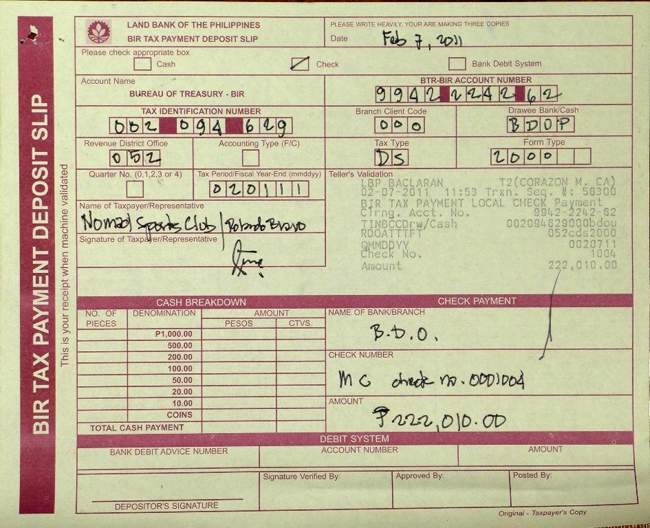 BIR TAX PAYMENT DEPOSIT SLIP
This is your receipt when machine validated
LAND BANK OF THE PHILIPPINES
BIR TAX PAYMENT DEPOSIT SLIP
PLEASE WRITE HEAVILY, YOUR ARE MAKING THREE COPIES
Date Feb 7, 2011
Please check appropriate box
Cash
Check
Bank Debit System
Account Name
BUREAU OF TREASURY - BIR
BTR-BIR ACCOUNT NUMBER
9942 2242 62
TAX IDENTIFICATION NUMBER
002 094 629
Branch Client Code
000
Drawee Bank/Cash
BDOP
Revenue District Office
052
Accounting Type (F/C)
Tax Type
DS
Form Type
2000
Quarter No. (0,1,2,3 or 4)
Tax Period/Fiscal Year-End (mmddyy)
020111
Teller's Validation
LBP BACLARAN T2(CORAZON M. CA)
02-07-2011 11:53 Trxn. Seq. #: 50300
BIR TAX PAYMENT LOCAL CHECK Payment
Clrng. Acct. No. 9942-2242-62
TINBCCDrw/Cash 002094629000bdou
RDOATTIFT 052cds2000
QMMDDYY 0020711
Check No. 1004
Amount 222,010.00
Name of Taxpayer/Representative
Nomad Sports Club / Rolando Bravo
Signature of Taxpayer/Representative
CASH BREAKDOWN
NO. OF PIECES
DENOMINATION
AMOUNT
PESOS
CTVS.
P1,000.00
500.00
200.00
100.00
50.00
20.00
10.00
COINS
TOTAL CASH PAYMENT
CHECK PAYMENT
NAME OF BANK/BRANCH
B.D.O.
CHECK NUMBER
MC check no. 0001004
AMOUNT
₱222,010.00
DEBIT SYSTEM
BANK DEBIT ADVICE NUMBER
ACCOUNT NUMBER
AMOUNT
DEPOSITOR'S SIGNATURE
Signature Verified By:
Approved By:
Posted By:
Original - Taxpayer's Copy